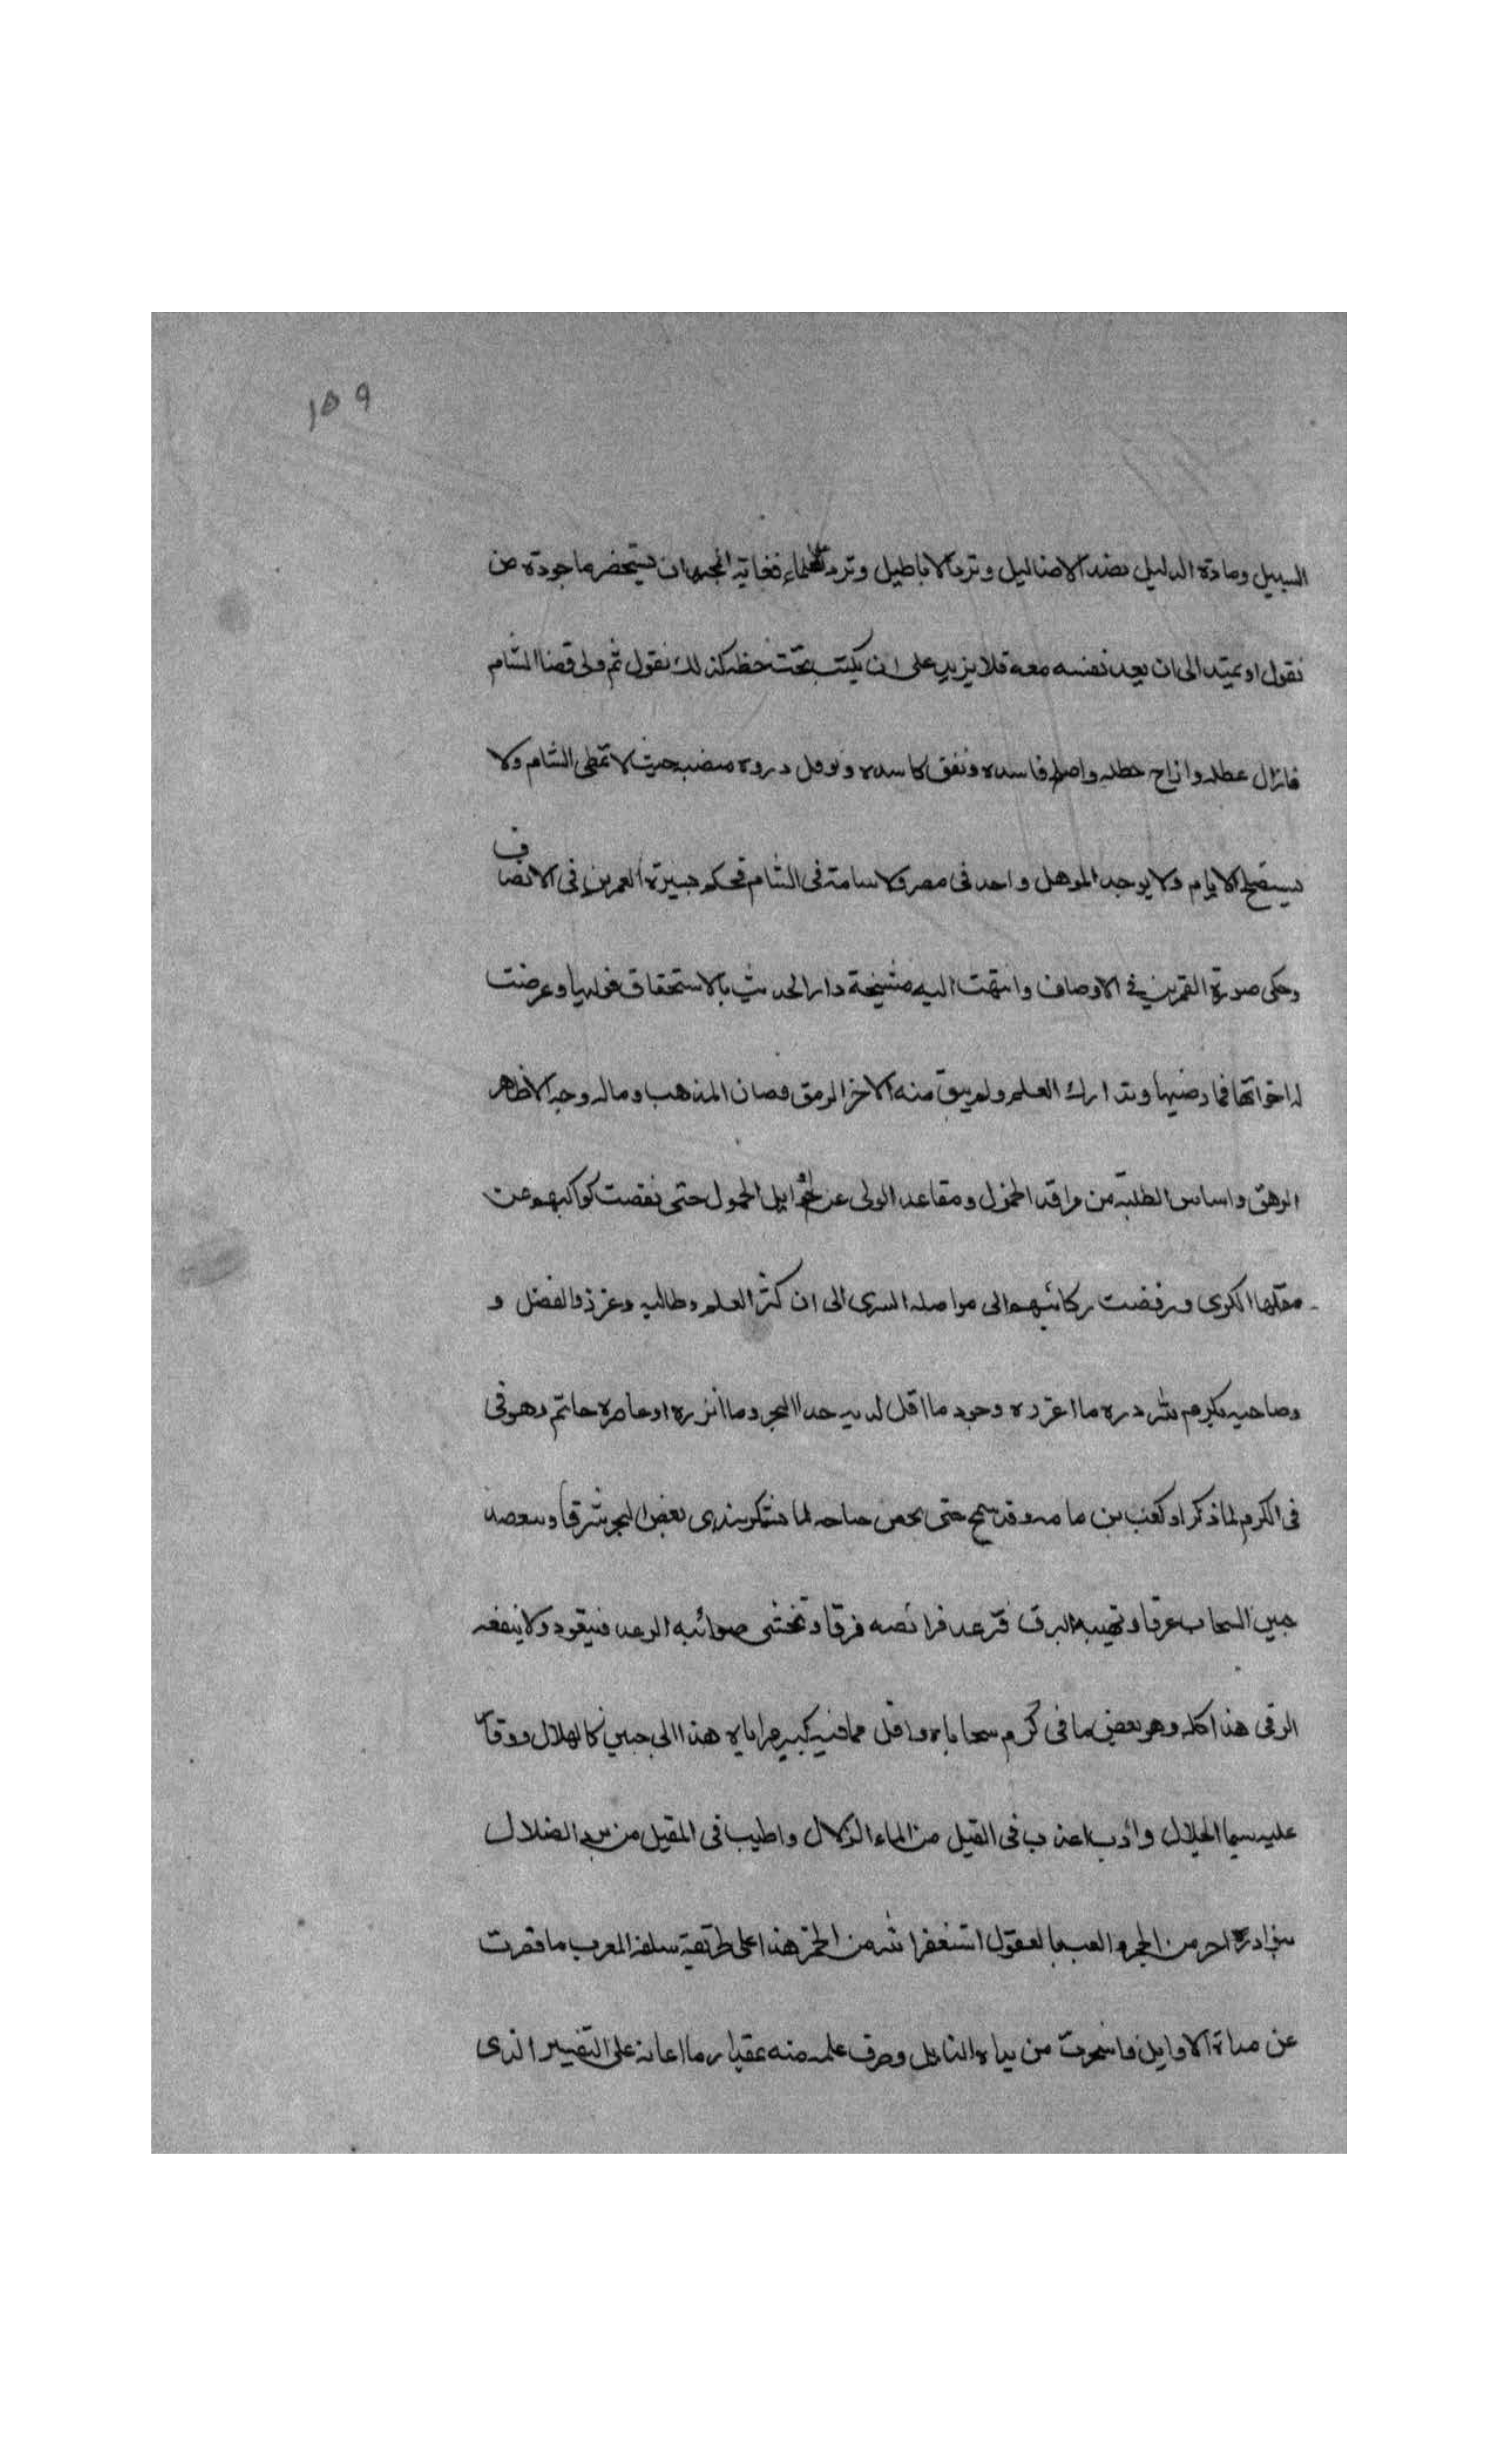 ١٥٩
السبيل ومادة الدليل بضد الاضاليل وترد الاباطيل وترد العلماء فغاية المجتهد ان يستحضر ما جوده من
نقول او يمتد الى ان يعد نفسه معه فلا يزيد على ان يكتب تحت خطه كذلك نقول ثم ولى قضا الشام
فازال عطله وازاح خطله واصلح فاسده ونفق كاسده منصبه حيث لا تمطى الشام ولا
الايام ولا يوجد الموهل واحد فى مصر ولا سامة فى الشام فحكم بسيرة العمرين فى الانصاف
وحكى صورة القمرين فى الاوصاف وانتهت اليه مشيخة دار الحديث بالاستحقاق فوليها وعرضت
له اخواتها فما رضيها وتدارك العلم ولم يبق منه الا اخر الرمق وصان المذهب وماله وجه الا ظاهر
الرهق الطلبة من مراقد الخمول ومقاعد حتى نفضت كواكبهم عن
مقلها الكرى ورفضت ركائبهم الى مواصلة السرى الى ان كثر العلم وطالبيه وعز ذو الفضل و
وصاحبه بكرم ما اغزره وجود ما اقل لديه حدا البحر وما انزره او عاصره حاتم وهو فى
فى الكرم لما ذكر او كعب بن مامه وقد سمح حتى لما شكر بعض البحر شرقا
جبين السحاب عرقا وتهيبه البرق فترعد فرائصه فرقا وتخشى صوائبه الرعد فيتعوذ ولا ينفعه
الرقى هذا كله وهو بعض ما فى كرم سجاياه واقل مما فيه كبير مزاياه هذا الى جبين كالهلال ووقار
عليه سيما الجلال وادب اعذب فى القيل من الماء الزلال واطيب فى المقيل من برد الضلال
احر من الجمر والعب بالعقول استغفر الله من الخمر هذا على طريقة سلفه العرب ما قصرت
عن مداة الاوايل من يداه النايل وصرف علمه منه بمقدار ما اعانه على التفسير الذى